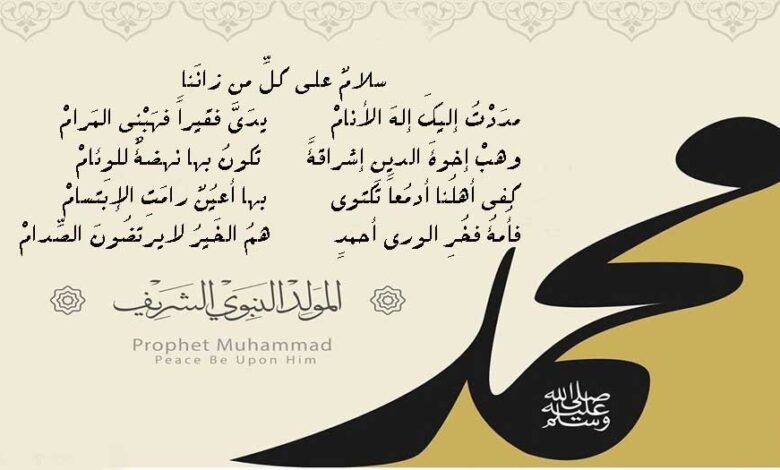 سلامٌ على كلِّ من زانَنا
مدَدْتُ إليكَ إلهَ الأنامْ يدَىَّ فقيراً فهَبْنِى المَرامْ
وهبْ إخوةَ الدينِ إشراقةً تكونُ بها نهضةٌ للوئامْ
كِفى أهلُنا أدمُعاً تَكتوى بها أعيُنٌ رامَتِ الإبتسامْ
فأمةُ فخُرِ الورى أحمدٍ همُ الخَيرُ لايرتضُونَ الصِّدامْ
المَولِد النبَوي الشريف
Prophet Muhammad
Peace Be Upon Him
محمد
صلى الله عليه وسلم